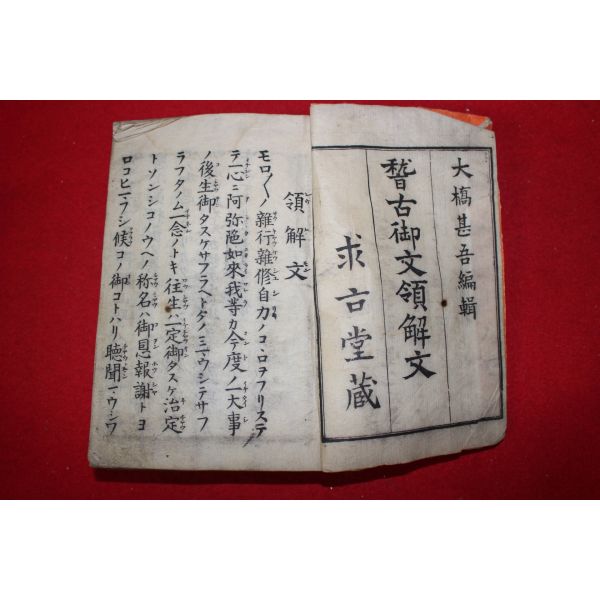 大橋甚吾編輯
稽古御文領解文
求古堂蔵
領解文
モロ〳〵ノ雜行雜修自力ノコヽロヲフリステ
テ一心ニ阿弥陁如來我等カ今度ノ一大事
ノ後生御タスケサフラヘトタノミマウシテサフ
ラフタノム一念ノトキ往生ハ一定御タスケ治定
トソンシコノウヘノ称名ハ御恩報謝トヨ
ロコヒマウシ候コノ御コトハリ聴聞マウシワ